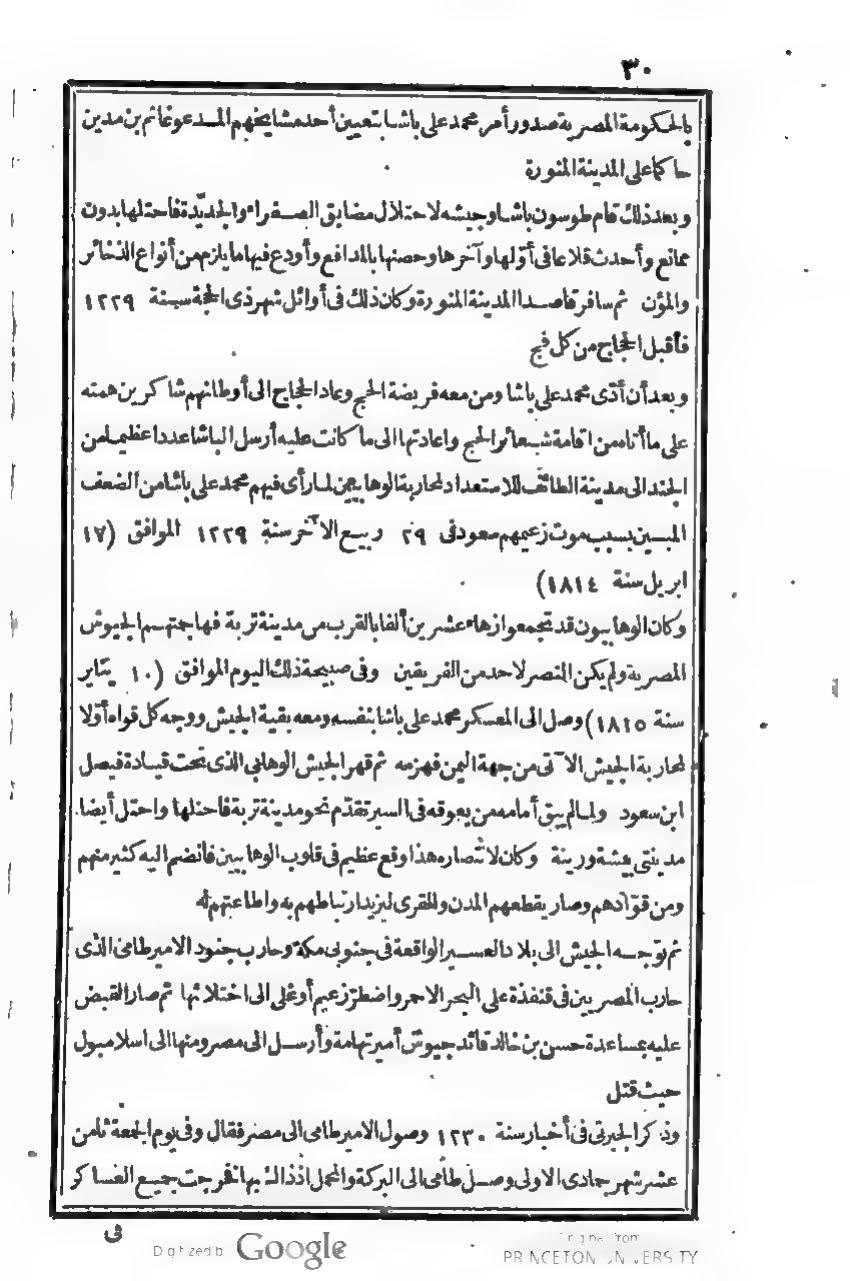 ٣٠
بالحكومة المصرية صدور أمر محمد على باشا بتعيين أحد مشايخهم المدعو غانم بن مدين
حاكما على المدينة المنورة
وبعد ذلك قام طوسون باشا وجيشه لاحتلال مضايق الصفراء والجديّدة فاحتلها بدون
ممانع وأحدث قلاعا فى أوّلها وآخرها وحصنها بالمدافع وأودع فيها ما يلزم من أنواع الذخائر
والمؤن ثم سافر قاصدا المدينة المنورة وكان ذلك فى أوائل شهر ذى الحجة سنة ١٢٢٩
فأقبل الحجاج من كل فج
وبعد أن أدّى محمد على باشا ومن معه فريضة الحج وعاد الحجاج الى أوطانهم شاكرين همته
على ما أتاه من اقامة شعائر الحج واعادتها الى ما كانت عليه أرسل الباشا عددا عظيما من
الجند الى مدينة الطائف للاستعداد لمحاربة الوهابيين لما رأى فيهم محمد على باشا من الضعف
المبين بسبب موت زعيمهم سعود فى ٢٩ ربيع الآخر سنة ١٢٢٩ الموافق (١٧
ابريل سنة ١٨١٤)
وكان الوهابيون قد تجمعوا زهاء عشرين ألفا بالقرب من مدينة تربة فهاجمتهم الجيوش
المصرية ولم يكن النصر لاحد من الفريقين وفى صبيحة ذلك اليوم الموافق (١٠ يناير
سنة ١٨١٥) وصل الى المعسكر محمد على باشا بنفسه ومعه بقية الجيش ووجه كل قواه أوّلا
لمحاربة الجيش الآتى من جهة اليمن فهزمه ثم قهر الجيش الوهابى الذى تحت قيادة فيصل
ابن سعود ولما لم يبق أمامه من يعوقه فى السير تقدّم نحو مدينة تربة فاحتلها واحتل أيضا
مدينتى بيشة ورينة وكان لانتصاره هذا وقع عظيم فى قلوب الوهابيين فانضم اليه كثير منهم
ومن قوّادهم وصار يقطعهم المدن والقرى ليزيد ارتباطهم به واطاعتهم له
ثم توجه الجيش الى بلاد العسير الواقعة فى جنوبى مكة وحارب جنود الامير طامى الذى
حارب المصريين فى قنفذة على البحر الاحمر واضطرّ زعيم أوغلى الى اختلائها ثم صار القبض
عليه بمساعدة حسن بن خالد قائد جيوش أمير تهامة وأرسل الى مصر ومنها الى اسلامبول
حيث قتل
وذكر الجبرتى فى أخبار سنة ١٢٣٠ وصول الامير طامى الى مصر فقال وفى يوم الجمعة ثامن
عشر شهر جمادى الاولى وصل طامى الى البركة والمحمل اذ ذاك بها فخرجت جميع العساكر
فى
Digitized by Google
Original from
PRINCETON UNIVERSITY